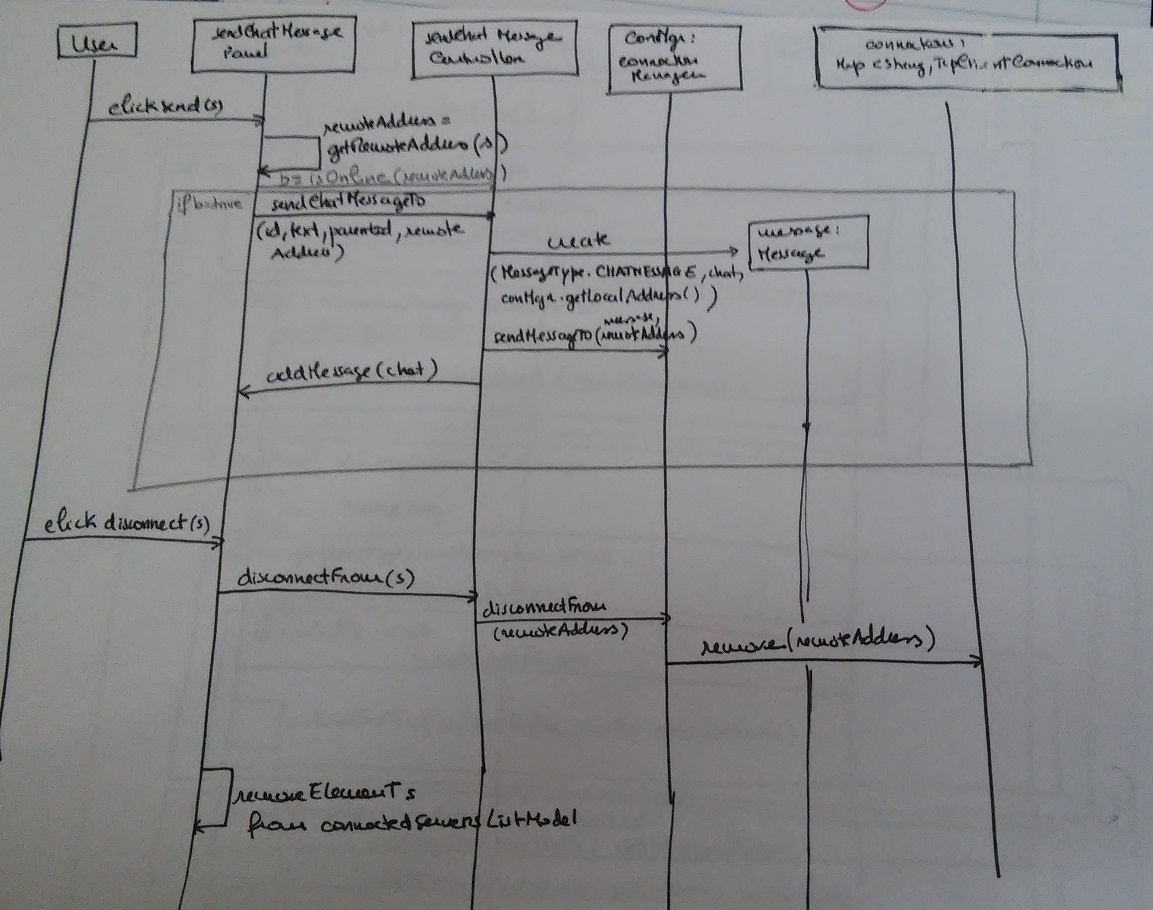 User
sendChatMessage
Panel
sendChat Message
Controller
ConMgr:
connection
Manager
connections:
Map <String, TcpClientConnection
clickSend(s)
remoteAddress =
getRemoteAddress(s)
b= isOnline(remoteAddress)
if b=true
sendChatMessageTo
(id, text, parentId, remote
Address)
create
(MessageType.CHATMESSAGE, chat,
conMgr.getLocalAddress())
message:
Message
message,
sendMessageTo(remoteAddress)
addMessage(chat)
click disconnect(s)
disconnectFrom(s)
disconnectFrom
(remoteAddress)
remove(remoteAddress)
removeElement s
from connectedServersListModel